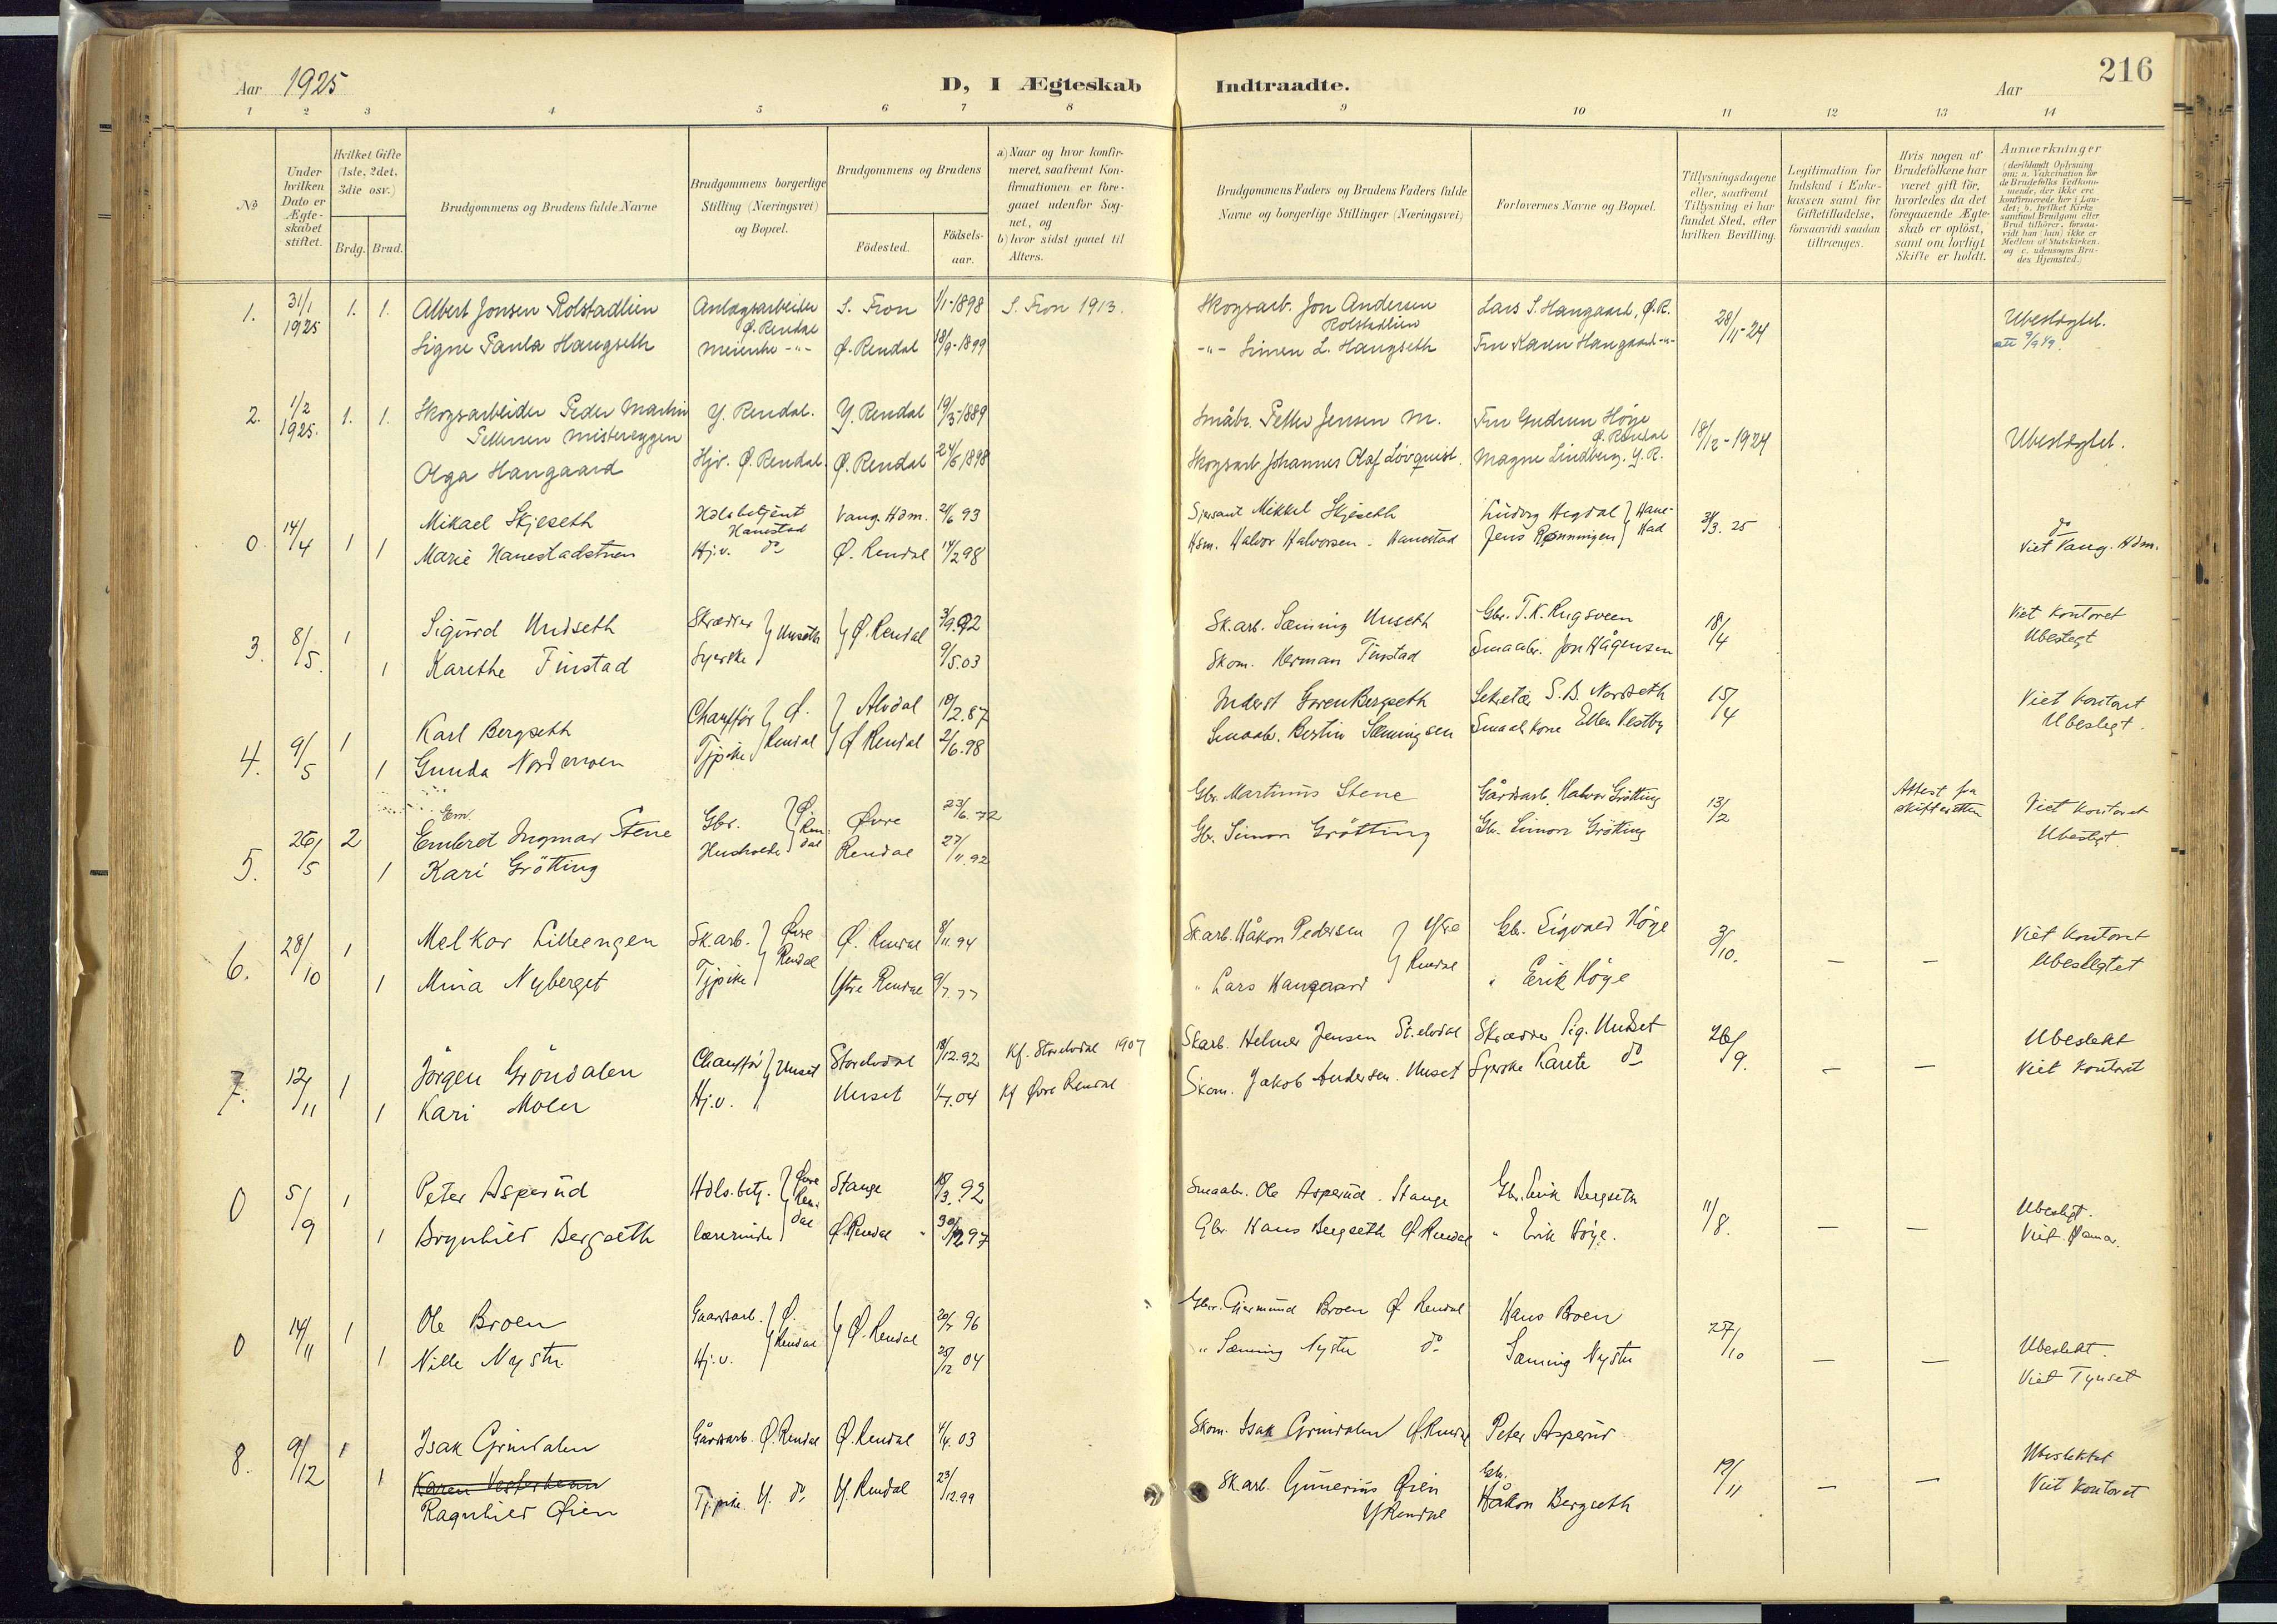 216
Aar 1925
D, I Ægteskab Indtraadte.
Aar
1 2 3 4 5 6 7 8 9 10 11 12 13 14
No
Under hvilken Dato er Ægteskabet stiftet.
Hvilket Gifte (1ste, 2det, 3die osv.)
Brdg. Brud.
Brudgommens og Brudens fulde Navne
Brudgommens borgerlige Stilling (Næringsvei) og Bopæl.
Brudgommens og Brudens
Födested.
Födselsaar.
a) Naar og hvor konfirmeret, saafremt Konfirmationen er foregaaet udenfor Sognet, og
b) hvor sidst gaaet til Alters.
Brudgommens Faders og Brudens Faders fulde Navne og borgerlige Stillinger (Næringsvei)
Forlovernes Navne og Bopæl.
Tillysningsdagene eller, saafremt Tillysning ei har fundet Sted, efter hvilken Bevilling.
Legitimation for Indskud i Enkekassen samt for Giftetilladelse, forsaavidt saadan tiltrænges.
Hvis nogen af Brudefolkene har været gift før, hvorledes da det foregaaende Ægteskab er oplöst, samt om lovligt Skifte er holdt.
Anmærkninger
(deriblandt Oplysning om: a. Vakcination for de Brudefolks Vedkommende, der ikke ere konfirmerede her i Landet; b. hvilket Kirkesamfund Brudgom eller Brud tilhörer, forsaavidt han (hun) ikke er Medlem af Statskirken, og c. udensogns Brudes Hjemsted.)
1. 31/1 1925 1. 1. Albert Jonsen Rolstadlien Anlægsarbeider Ø. Rendal S. Fron 1/1-1898 S. Fron 1913. Skogsarb. Jon Andersen Rolstadlien Lars S. Hangaard, Ø.R. 28/11-24 Ubeslegtet.
Signe Paula Haugseth Meierske -"- Ø. Rendal 18/9-1899 -"- Simen L. Haugseth Fru Karen Hangaard -"-
2. 1/2 1925. 1. 1. Skogsarbeider Peder Martin Pettersen Misterøggen Y. Rendal. Y. Rendal 19/3-1889 Småbr. Petter Jensen M. Fru Gudrun Høye Ø. Rendal 18/12-1924 Ubeslegtet.
Olga Hangaard Hjv. Ø. Rendal. Ø. Rendal 24/6 1898 Skogsarb. Johannes Olaf Lövquist. Magne Lindberg. Y.R.
0 14/4 1 1 Mikael Skjeseth Hdlsbetjent Hanestad Vang. Hdm. 21/6 93 Sersant Mikkel Skjeseth Ludvig Hegdal Hanestad 31/3. 25 do
Marie Hanestadstuen Hj.v. do Ø. Rendal 14/2 98 Hdm. Halvor Halvorsen. Hanestad Jens Rønningen Viet Vang. Hdm.
3. 8/5. 1 Sigurd Undseth Skrædder Unseth Ø. Rendal 3/9.92 Sk.arb. Sæming Unseth Gbr. T.K. Rugsveen 18/4 Viet kontoret
1 Karethe Finstad Syerske 9/5.03 Skom. Herman Finstad Smaabr. Jon Hågensen Ubeslegt
4. 9/5 1 Karl Bergseth Chauffør Ø. Rendal Alvdal 10/2.87 Inderst Søren Bergseth Sekretær S.B. Nordseth 15/4 Viet kontoret
1 Gunda Nordmoen Tjpike Ø Rendal 2/6.98 Smaabr. Bersvin Sæmingsen Smaabr.kone Ellen Vestby Ubeslegt.
5. 26/5 2 Em. Embret Ingmar Stene Gbr. Ø. Rendal Øvre Rendal 23/6.72 Gbr. Martinus Stene Gårdsarb. Halvor Grötting 13/2 Attest fra skifteretten Viet kontoret
1 Kari Grötting Husholder 27/11.92 Gb. Simon Grötting Gb. Simon Grötting Ubeslegt.
6. 28/10 1 Melkor Lilleengen Sk.arb. Øvre Rendal Ø. Rendal 8/11.94 Skarb. Håkon Pedersen Ytre Rendal Gb. Sigvald Höye 3/10. — — Viet kontoret
1 Mina Nyberget Tjpike Ytre Rendal 9/7.77 " Lars Hangaard " Erik Höye Ubeslegtet
7. 12/11 1 Jörgen Gröndalen Chauffør Unset Storelvdal 18/12.92 Kf. Storelvdal 1907 Skarb. Helmer Jensen St.elvdal Skrædder Sig. Undset 26/9. — — Ubeslektet
1 Kari Moen Hj.v. Unset 1/7.04 Kf Øvre Rendal Skom. Jakob Andersen. Unset Syerske Karete do Viet kontoret
0 5/9 1 Peter Asperud Hdls.betj. Øvre Rendal Stange 18/3.92 Smaabr. Ole Asperud. Stange Gbr. Erik Bergseth 11/8. — — Ubeslegt.
1 Brynhild Bergseth lærerinde Ø. Rendal 30/12 97 Gbr. Hans Bergseth Ø Rendal " Erik Höye. Viet. Hamar.
0 14/11 1 Ole Broen Gaardsarb. Ø. Rendal Ø. Rendal 20/7 96 Gbr. Gjermund Broen Ø Rendal Hans Broen 27/10 — — Ubeslekt.
1 Nille Nystu Hj.v. 25/12 04 " Sæming Nystu do Sæming Nystu Viet Tynset
8. 9/12 1 Isak Grindalen Gårdsarb. Ø. Rendal Ø. Rendal 4/4.03 Skom. Isak Grindalen Ø. Rendal Peter Asperud 19/11 — — Ubeslektet
1 Ragnhild Øien Tjpike. Y. do Y. Rendal 23/12.99 Sk.arb. Gunerius Øien Y Rendal Gbr. Håkon Bergseth Viet kontoret